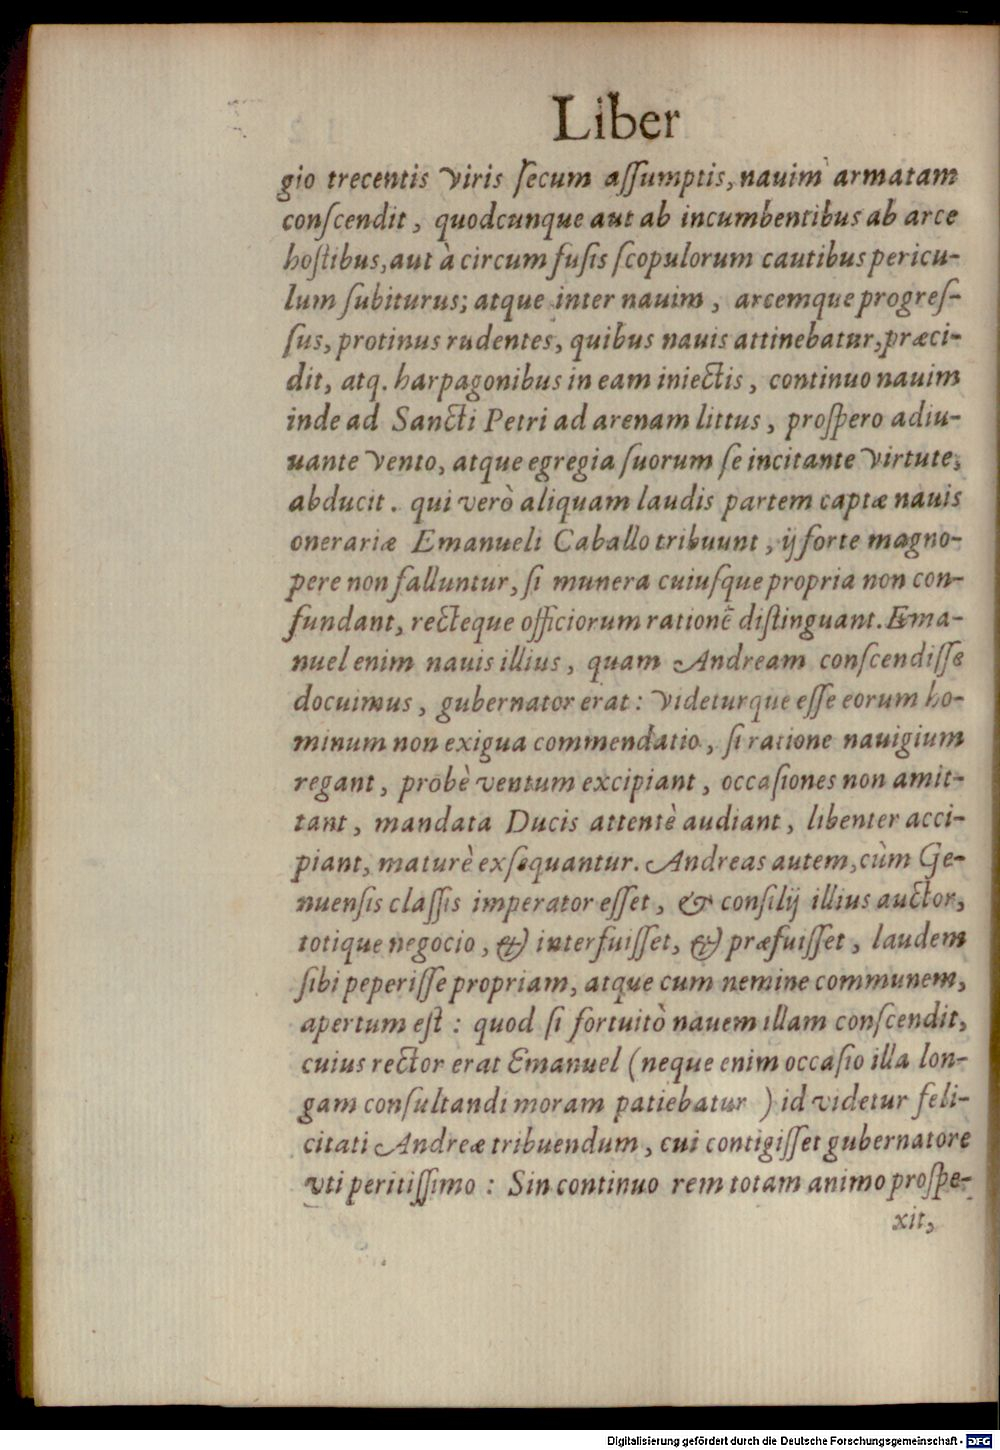 Liber
gio trecentis viris ſecum aſſumptis, nauim armatam
conſcendit, quodcunque aut ab incumbentibus ab arce
hoſtibus, aut à circumfuſis ſcopulorum cautibus pericu-
lum ſubiturus; atque inter nauim, arcemque progreſ-
ſus, protinus rudentes, quibus nauis attinebatur, præci-
dit, atq. harpagonibus in eam iniectis, continuo nauim
inde ad Sancti Petri ad arenam littus, proſpero adiu-
uante vento, atque egregia ſuorum ſe incitante virtute,
abducit. qui verò aliquam laudis partem captæ nauis
onerariæ Emanueli Caballo tribuunt, ij forte magno-
pere non falluntur, ſi munera cuiuſque propria non con-
fundant, recteque officiorum rationē diſtinguant. Ema-
nuel enim nauis illius, quam Andream conſcendiſſe
docuimus, gubernator erat: videturque eſſe eorum ho-
minum non exigua commendatio, ſi ratione nauigium
regant, probè ventum excipiant, occaſiones non amit-
tant, mandata Ducis attentè audiant, libenter acci-
piant, maturè exſequantur. Andreas autem, cùm Ge-
nuenſis claſſis imperator eſſet, & conſilij illius auctor,
totique negocio, & interfuiſſet, & præfuiſſet, laudem
ſibi peperiſſe propriam, atque cum nemine communem,
apertum eſt: quod ſi fortuitò nauem illam conſcendit,
cuius rector erat Emanuel (neque enim occaſio illa lon-
gam conſultandi moram patiebatur) id videtur feli-
citati Andreæ tribuendum, cui contigiſſet gubernatore
vti peritiſſimo: Sin continuo rem totam animo proſpe-
xit,
Digitalisierung gefördert durch die Deutsche Forschungsgemeinschaft - DFG